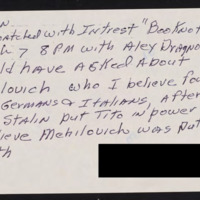 watched with Intrest "BookNot
7 8 PM with Alex Dragno
ld have asked About
lovich who I believe fo
Germans & Italians, After
Stalin put Tito in power
ieve Mehilovich was put
th